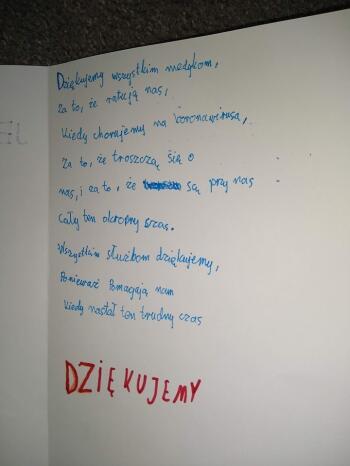 Dziękujemy wszystkim medykom,
Za to, że ratują nas,
Kiedy chorujemy na coronawirusa,
Za to, że troszczą się o
nas, i za to, że są przy nas
cały ten okropny czas.
Wszystkim służbom dziękujemy,
Ponieważ Pomagają nam
Kiedy nastał ten trudny czas
DZIĘKUJEMY